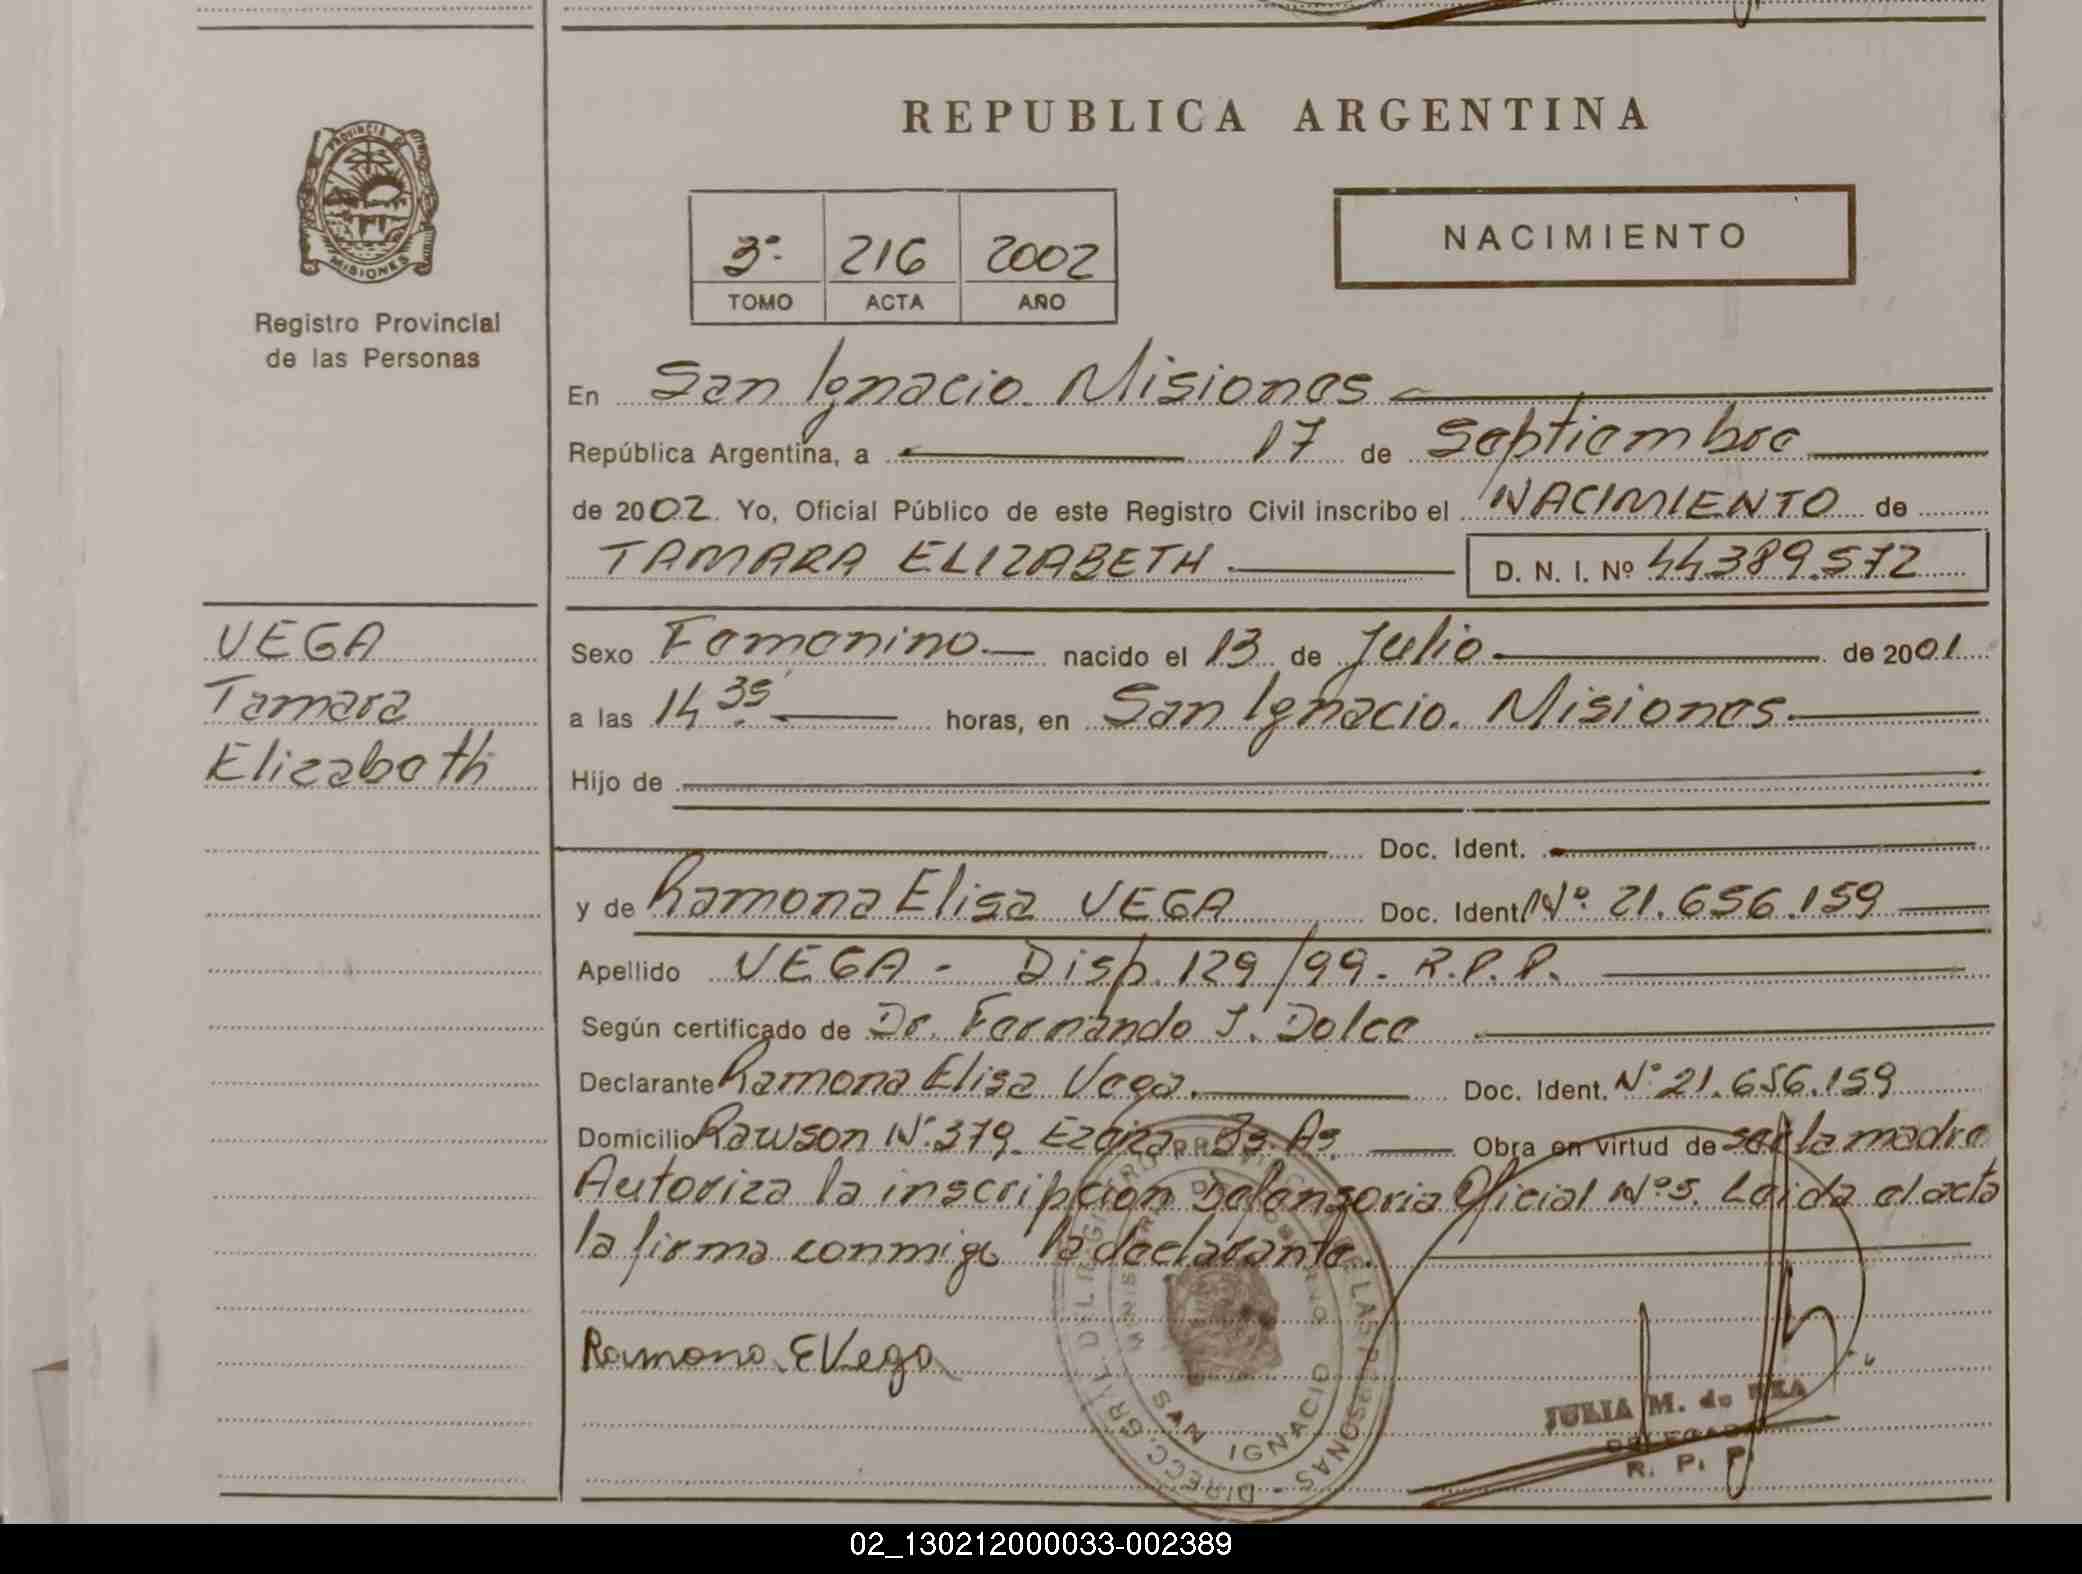 PROVINCIA DE
MISIONES
Registro Provincial
de las Personas
VEGA
Tamara
Elizabeth
REPUBLICA ARGENTINA
3º 216 2002
TOMO ACTA AÑO
NACIMIENTO
En San Ignacio. Misiones
República Argentina, a 17 de Septiembre
de 2002. Yo, Oficial Público de este Registro Civil inscribo el NACIMIENTO de
TAMARA ELIZABETH. D. N. I. Nº 44.389.572
Sexo Femenino nacido el 13 de Julio de 2001
a las 14 35' horas, en San Ignacio. Misiones
Hijo de
Doc. Ident.
y de Ramona Elisa VEGA Doc. Ident. Nº 21.656.159
Apellido VEGA - Disp. 129/99. R.P.P.
Según certificado de Dr. Fernando J. Dolce
Declarante Ramona Elisa Vega. Doc. Ident. Nº 21.656.159
Domicilio Rawson Nº 379. Ezeiza. Bs. As. Obra en virtud de ser la madre
Autoriza la inscripcion Defensoria Oficial Nº 5. Leida el acta
la firma conmigo la declarante.
Ramona E Vega
DIRECC. GRAL. DEL REGISTRO PROVINCIAL DE LAS PERSONAS -
SAN IGNACIO
JULIA M. de
DELEGADA
R. P. P.
02_130212000033-002389